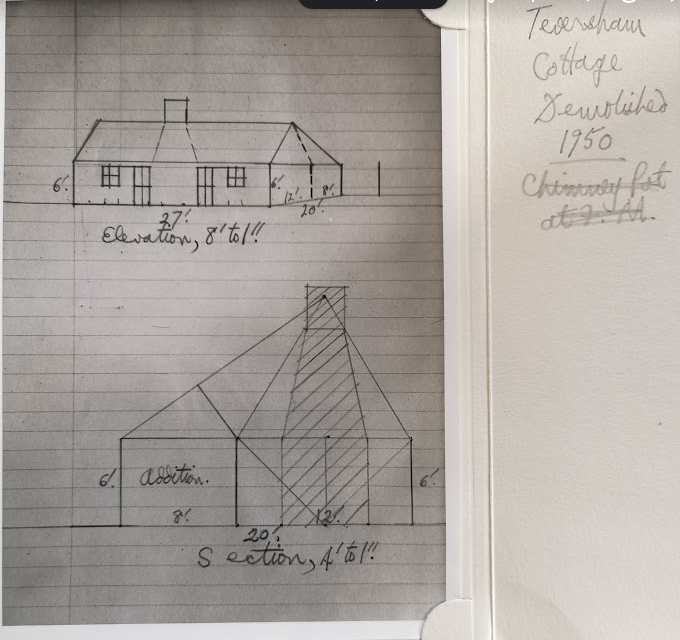 6'.
6'.
12'.
8'.
27'.
20'.
Elevation, 8' to 1".
6'.
Addition.
8'.
12'.
6'.
20'.
Section, 4' to 1".
Teversham
Cottage
Demolished
1950
Chimney Pot
at F. M.